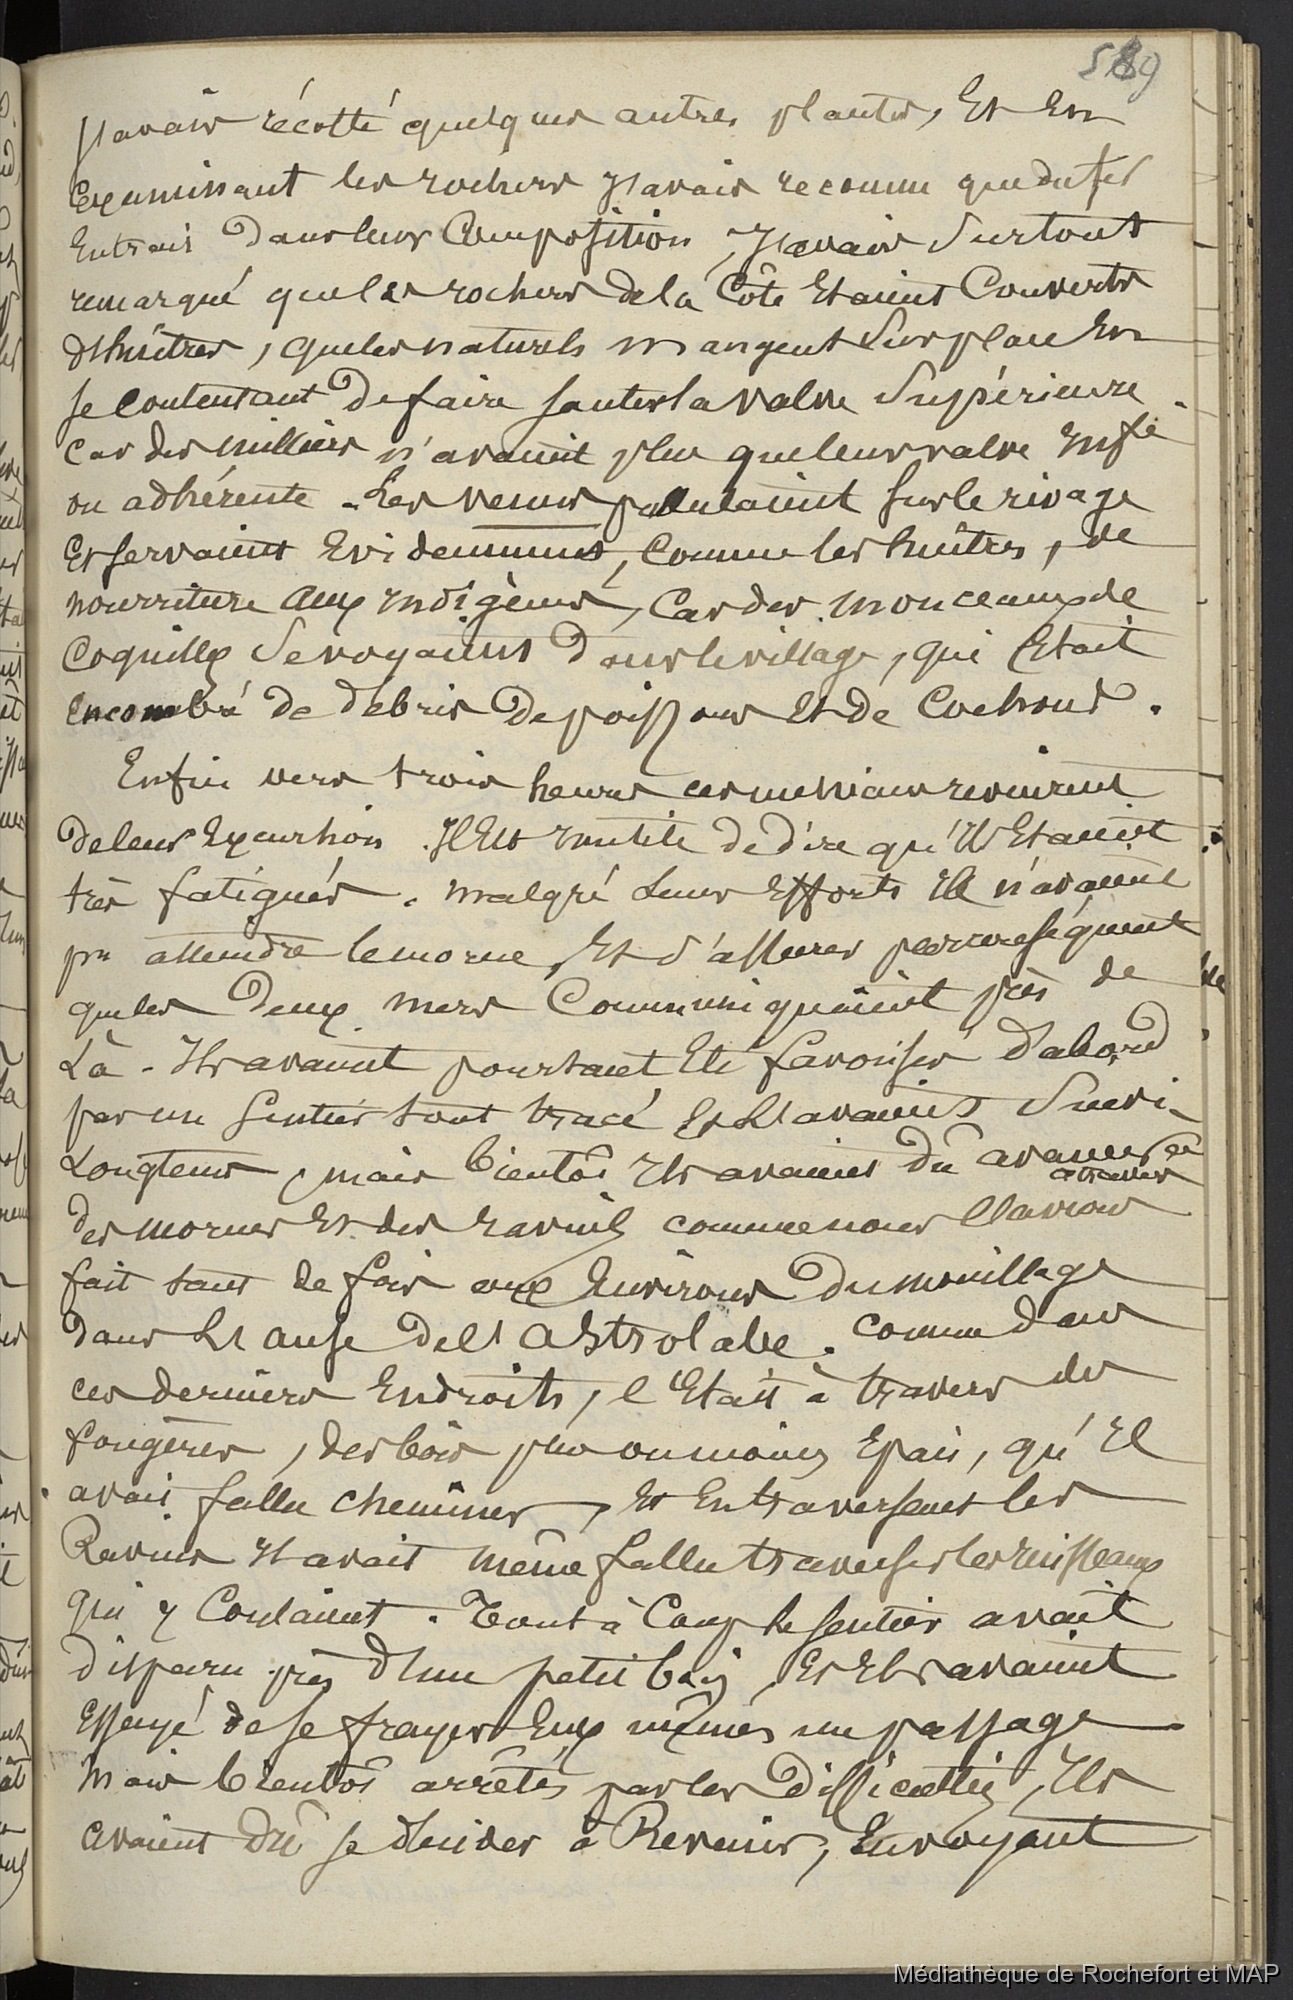 589
J'avais récolté quelques autres plantes, Et En
Examinant les rochers J'avais reconnu que du fer
Entrait Dans leur Composition, J'avais Surtout
remarqué que les rochers de la Côte Etaient Couverts
d'huîtres, que les naturels mangent Sur place En
se contentant De faire sauter la valve Supérieure
car des milliers n'avaient plus que leur valve infre
ou adhérente. Les venus pullulaient sur le rivage
Et servaient Evidemment, Comme les huîtres, de
nourriture aux indigènes, Car des monceaux de
Coquilles Se voyaient Dans le village, qui Etait
Encombré de débris De poissons Et de Cochons.
Enfin vers trois heures ces messieurs revinrent
De leur Excursion. Il Est inutile De dire qu'ils Etaient
très fatigués. malgré Leurs Efforts Ils n'avaient
pu atteindre le morne, Et s'assurer par conséquent
que les Deux mers Communiquaient près de
Là. Ils avaient pourtant Eté favorisés D'abord
par un Sentier tout tracé Et L'avaient Suivi
Longtems, mais bientôt Ils avaient Dû avancer
à travers
des mornes Et des ravins comme nous l'avions
fait tant de fois aux Environs Du mouillage
dans L'anse De l'Astrolabe. Comme dans
ces derniers Endroits, c'Etait à travers des
fougères, des bois plus ou moins Epais, qu'Il
avait fallu cheminer, Et En traversant les
Ravins Il avait même fallu traverser les ruisseaux
qui y Coulaient. Tout à Coup le sentier avait
disparu près d'un petit bois, Et Ils avaient
Essayé de se frayer Eux mêmes un passage
Mais bientôt arrêtés par les Difficultés, Ils
avaient Dû se décider à Revenir, En voyant
Médiathèque de Rochefort et MAP